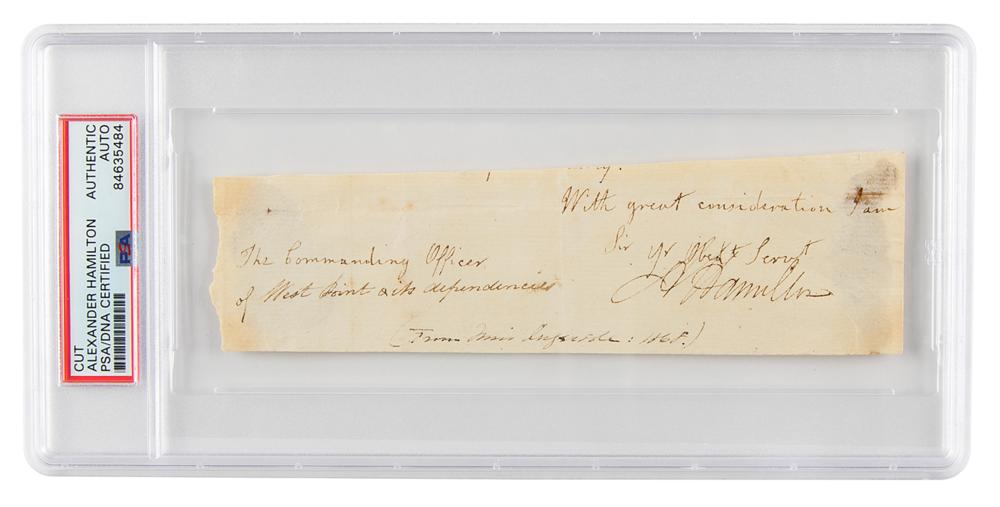 CUT
ALEXANDER HAMILTON
PSA/DNA CERTIFIED
AUTHENTIC
AUTO
84635484
PSA
With great consideration I am
Sir Yr Obedt Servt
A Hamilton
The Commanding Officer
of West Point & its dependencies
(From Miss